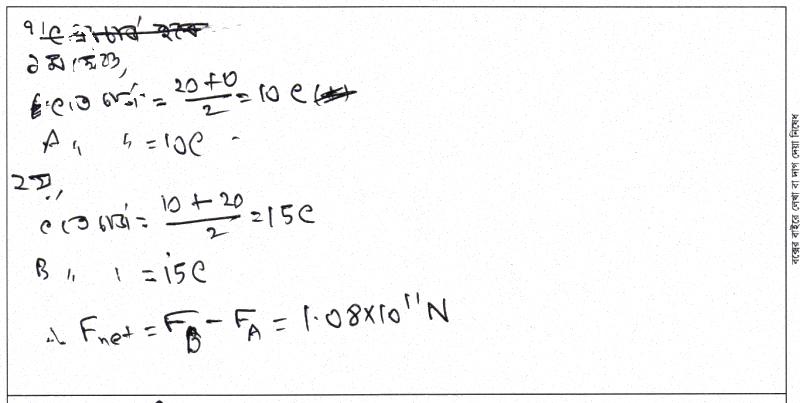 ৭।
১ম ক্ষেত্রে,
C তে চার্জ = (20+0)/2 = 10 C
A " " = 10C
২য়,
C তে চার্জ = (10+20)/2 = 15C
B " " = 15C
∴ F_net = F_B - F_A = 1.08×10^11 N
বক্সের বাইরে লেখা বা দাগ দেয়া নিষেধ